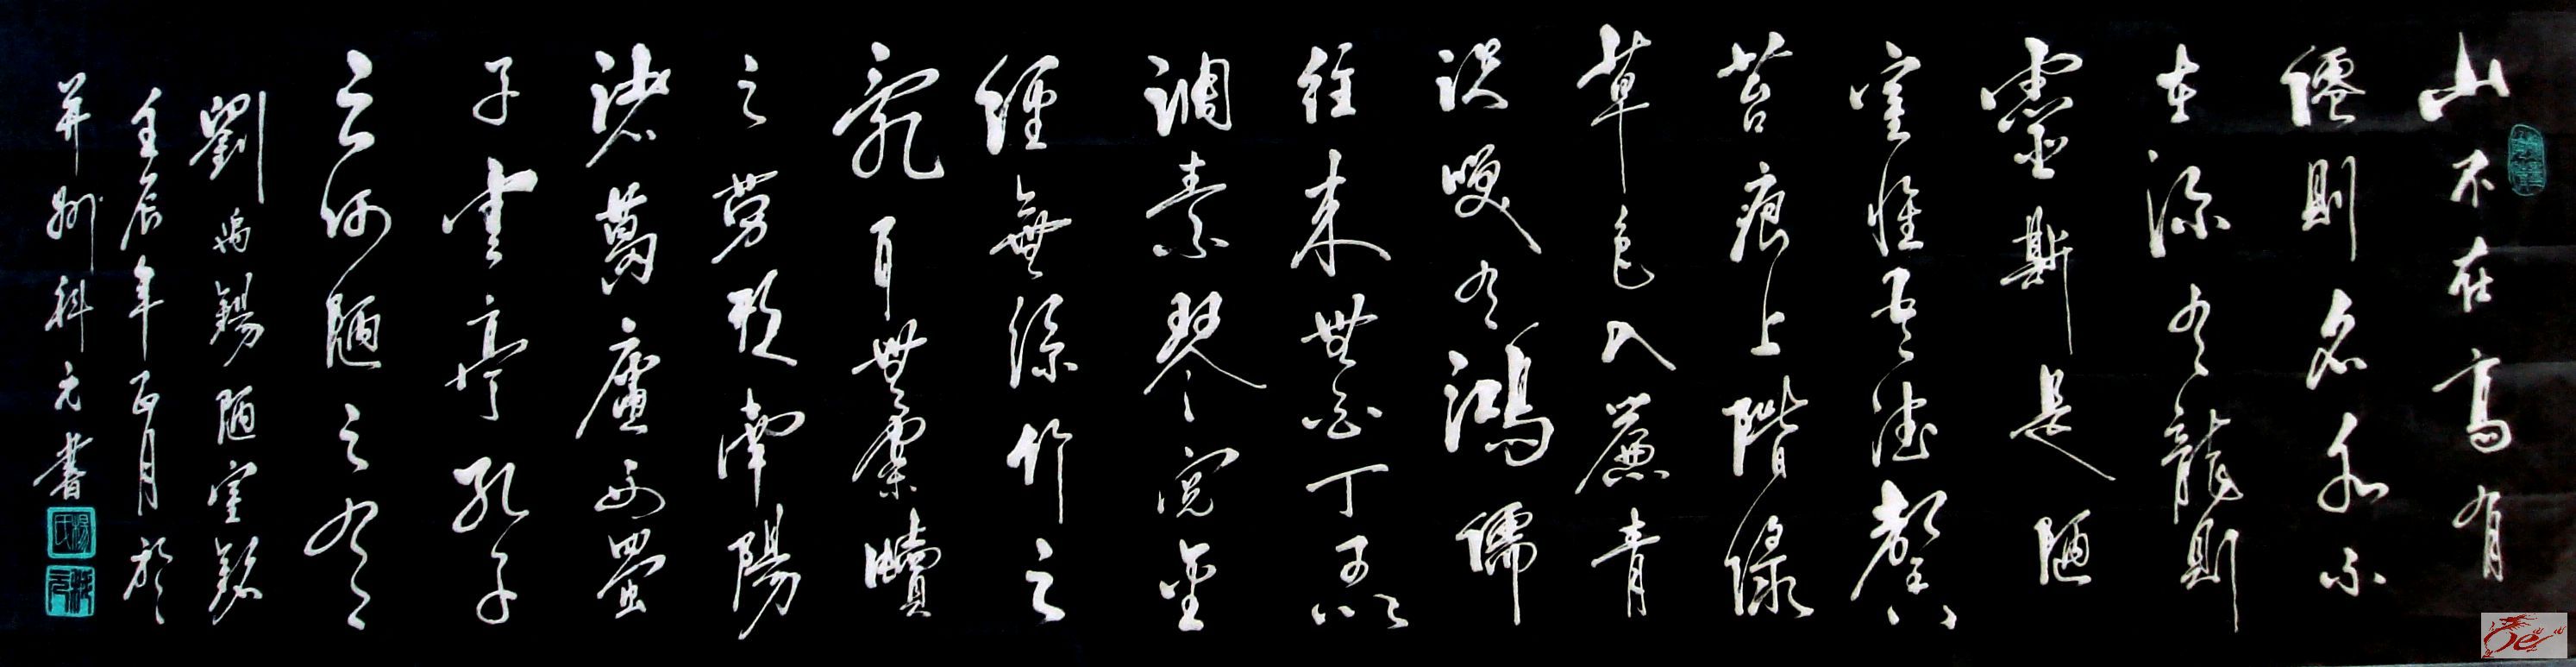 山不在高有
僊則名水不
在深有龍則
靈斯是陋
室惟吾德馨
苔痕上階綠
草色入簾青
談咲有鴻儒
往来無白丁可以
調素琴閱金
經無絲竹之
亂耳無案牘
之勞形南陽
諸葛廬西蜀
子雲亭孔子
云何陋之有
劉禹錫陋室銘
壬辰年正月於
并州科元書